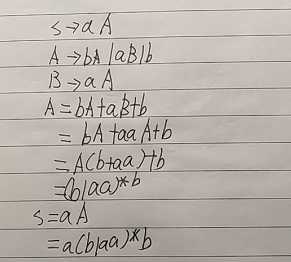 s→aA
A→bA|aB|b
B→aA
A=bA+aB+b
=bA+aaA+b
=A(b+aa)+b
=(b|aa)*b
s=aA
=a(b|aa)*b